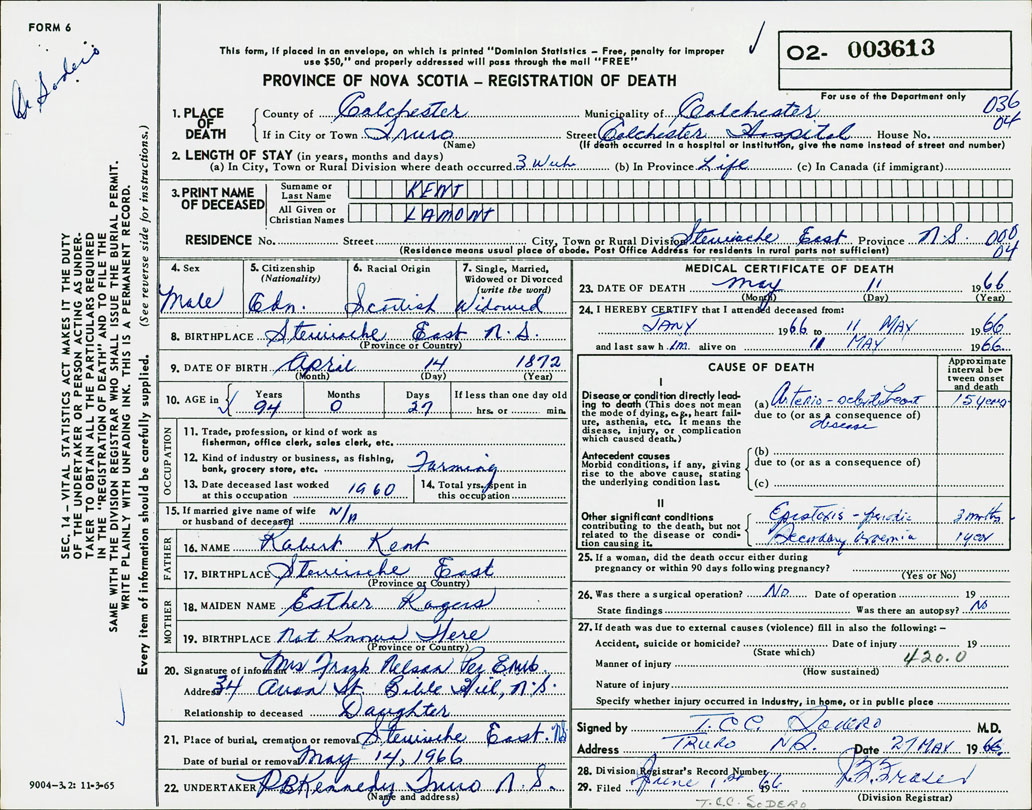 FORM 6
Dr Sodero
This form, if placed in an envelope, on which is printed "Dominion Statistics – Free, penalty for improper
use $50," and properly addressed will pass through the mail "FREE"
PROVINCE OF NOVA SCOTIA – REGISTRATION OF DEATH
O2- 003613
For use of the Department only
036
04
1. PLACE OF DEATH
County of Colchester Municipality of Colchester
If in City or Town Truro Street Colchester Hospital House No.
(Name) (If death occurred in a hospital or institution, give the name instead of street and number)
2. LENGTH OF STAY (in years, months and days)
(a) In City, Town or Rural Division where death occurred 3 (b) In Province Life (c) In Canada (if immigrant)
3. PRINT NAME OF DECEASED
Surname or Last Name KENT
All Given or Christian Names LAMONT
RESIDENCE No. Street City, Town or Rural Division Stewiacke East Province N.S. 000
04
(Residence means usual place of abode. Post Office Address for residents in rural parts not sufficient)
4. Sex 5. Citizenship (Nationality) 6. Racial Origin 7. Single, Married, Widowed or Divorced (write the word)
Male Cdn. Scottish Widowed
8. BIRTHPLACE Stewiacke East N.S.
(Province or Country)
9. DATE OF BIRTH April 14 1872
(Month) (Day) (Year)
10. AGE in Years Months Days If less than one day old
94 0 27 hrs. or min.
OCCUPATION
11. Trade, profession, or kind of work as
fisherman, office clerk, sales clerk, etc.
12. Kind of industry or business, as fishing,
bank, grocery store, etc. Farming
13. Date deceased last worked at this occupation 1960 14. Total yrs. spent in this occupation
15. If married give name of wife
or husband of deceased N/A
FATHER
16. NAME Robert Kent
17. BIRTHPLACE Stewiacke East
(Province or Country)
MOTHER
18. MAIDEN NAME Esther Rogers
19. BIRTHPLACE Not Known Here
(Province or Country)
20. Signature of informant Mrs Frank Nelson Per
Address 34 Avon St. Bible Hill, N.S.
Relationship to deceased Daughter
21. Place of burial, cremation or removal Stewiacke East. NS
Date of burial or removal May 14, 1966
22. UNDERTAKER P.B Kennedy Truro N.S.
(Name and address)
MEDICAL CERTIFICATE OF DEATH
23. DATE OF DEATH May 11 1966
(Month) (Day) (Year)
24. I HEREBY CERTIFY that I attended deceased from:
JANY 1966 to 11 MAY 1966
and last saw h im alive on 11 MAY 1966
CAUSE OF DEATH
Approximate interval between onset and death
I
Disease or condition directly leading
to death (This does not mean
the mode of dying, e.g., heart failure,
asthenia, etc. It means the
disease, injury, or complication
which caused death.)
(a) Arterio-sclerotic heart 15 years
due to (or as a consequence of)
disease
Antecedent causes
Morbid conditions, if any, giving
rise to the above cause, stating
the underlying condition last.
(b)
due to (or as a consequence of)
(c)
II
Other significant conditions
contributing to the death, but not
related to the disease or condition
causing it.
Epistaxis - 3 months
Secondary anaemia 1 year
25. If a woman, did the death occur either during
pregnancy or within 90 days following pregnancy?
(Yes or No)
26. Was there a surgical operation? No Date of operation 19
State findings Was there an autopsy? No
27. If death was due to external causes (violence) fill in also the following: –
Accident, suicide or homicide? Date of injury 19
(State which)
Manner of injury 420.0
(How sustained)
Nature of injury
Specify whether injury occurred in industry, in home, or in public place
Signed by T.C.C. SODERO M.D.
Address TRURO N.S. Date 27 MAY 1966
28. Division Registrar's Record Number
29. Filed June 1st 1966 Fraser
(Division Registrar)
T.C.C. SODERO
SEC. 14 – VITAL STATISTICS ACT MAKES IT THE DUTY
OF THE UNDERTAKER OR PERSON ACTING AS UNDER-
TAKER TO OBTAIN ALL THE PARTICULARS REQUIRED
IN THE "REGISTRATION OF DEATH" AND TO FILE THE
SAME WITH THE DIVISION REGISTRAR WHO SHALL ISSUE THE BURIAL PERMIT.
WRITE PLAINLY WITH UNFADING INK. THIS IS A PERMANENT RECORD.
Every item of information should be carefully supplied. (See reverse side for instructions.)
9004-3.2: 11-3-65